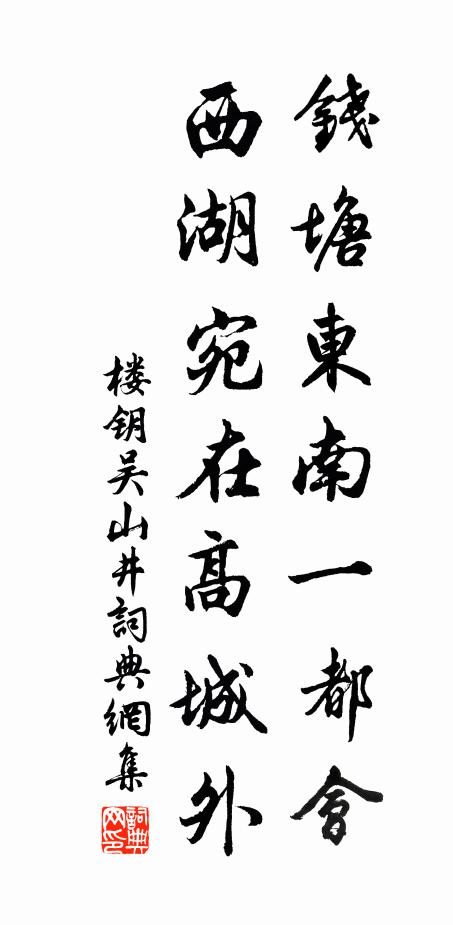 錢塘東南一都會
西湖宛在高城外
楼钥吴山井詞典網集
詞典网印